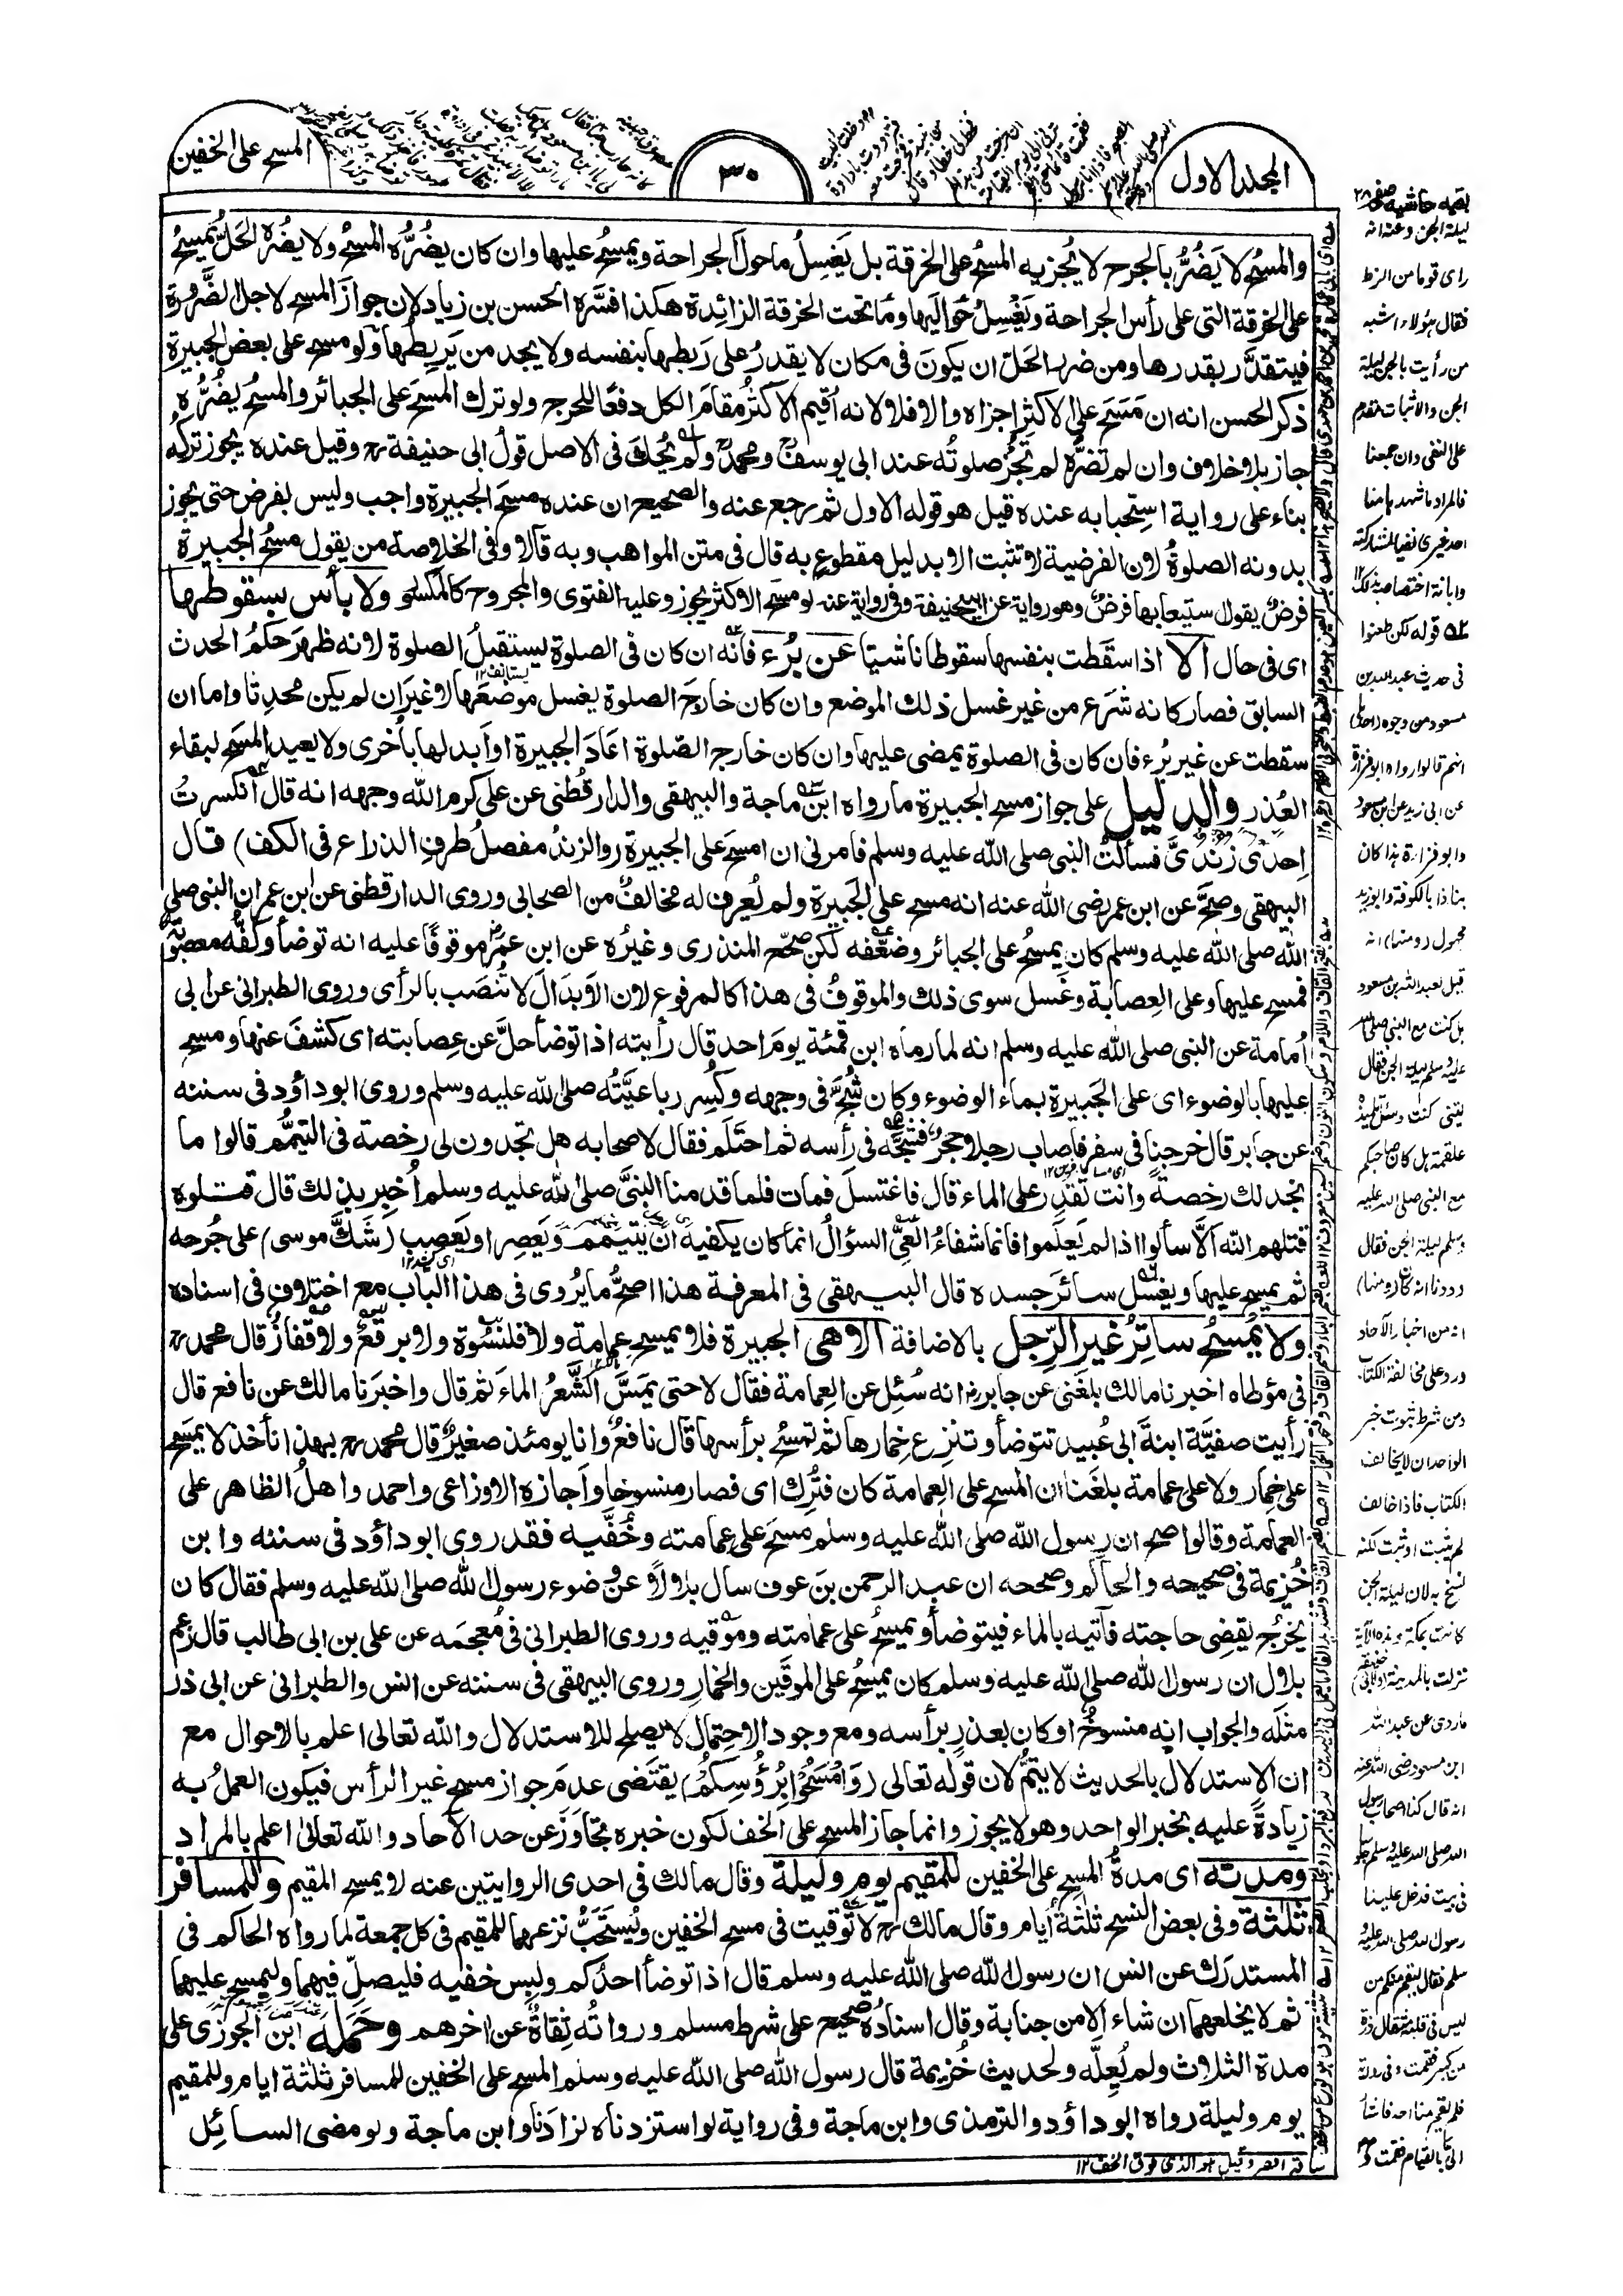 المجلد الاول
٣٠
المسح على الخفين
والمسحُ لا يَضُرُّ بالجرح لا يُجزيه المسحُ على الخرقة بل يَغسِلُ ماحولَ الجراحة ويمسحُ عليها وان كان يضُرُّه المسحُ ولا يضُره الحَلُّ يمسحُ
على الخرقة التى على رأس الجراحة ويَغْسِلُ حَوالَيها وما تحت الخرقة الزائدة هكذا فسَّره الحسن بن زياد لان جوازَ المسح لاجل الضَّرُورة
فيتقدَّر بقدرها ومن ضرر الحَلّ ان يكونَ فى مكان لا يقدرُ على رَبطها بنفسه ولا يجد من يَربِطُها ولو مسح على بعض الجبيرة
ذكر الحسن انه ان مَسَحَ على الاكثر اجزاه والا فلا ولانه أقيم الاكثرُ مقامَ الكل دفعًا للحرج ولو ترك المسحَ على الجبائر والمسحُ يضُرُّه
جاز بلا خلاف وان لم تضُرُّه لم تجُزْ صلوتُه عند ابى يوسفؒ ومحمدؒ ولم يُحكَ فى الاصل قولُ ابى حنيفةؒ وقيل عنده يجوز تركُه
بناء على رواية استحبابه عنده قيل هو قوله الاول ثم رجع عنه والصحيح ان عنده مسحَ الجبيرة واجب وليس بفرض حتى يجوز
بدونه الصلوةُ لان الفرضية لا تثبت الا بدليل مقطوع به قال فى متن المواهب وبه قالا وفى الخلاصة من يقول مسحُ الجبيرة
فرضٌ يقول ستيعابها فرضٌ وهو رواية عن ابيحنيفة وفى رواية عنه لو مسح الاكثر يجوز وعليه الفتوى والمجروح كالمكسو ولا بأس بسقوطها
اى فى حال الا اذا سقطت بنفسها سقوطا ناشيًا عن بُرْء فانه ان كان فى الصلوة يستقبلُ الصلوة لانه ظهرَ حكمُ الحدث
السابق فصار كانه شَرَع من غير غسل ذلك الموضع وان كان خارجَ الصلوة يغسل موضعَها لا غيرَ ان لم يكن محدِثا واما ان
سقطت عن غير بُرْء فان كان فى الصلوة يمضى عليها وان كان خارج الصّلوة اعادَ الجبيرة او أبدلها بأخرى ولا يعيد المسحَ لبقاء
العُذر والدليل على جواز مسح الجبيرة ما رواه ابن ماجة والبيهقى والدارقُطنى عن على كرم الله وجهه انه قال انكسرتْ
احدى زندىَّ فسألتُ النبى صلى الله عليه وسلم فامرنى ان امسحَ على الجبيرة (والزندُ مفصلُ طرفِ الذراع فى الكف) قال
البيهقى وصحَّ عن ابن عمر رضى الله عنه انه مسح على الجَبيرة ولم يُعرف له مخالفٌ من الصحابى وروى الدارقطنى عن ابن عمر ان النبى صلى
الله صلى الله عليه وسلم كان يمسحُ على الجبائر وضعَّفه لكن صحَّحه المنذرى وغيرُه عن ابن عمرؓ موقوفًا عليه انه توضأ وكفُّه معصوبة
فمسح عليها وعلى العِصابة وغَسل سوى ذلك والموقوفُ فى هذا كالمرفوع لان الابدالَ لا تُنصَب بالرأى وروى الطبرانى عن ابى
أمامة عن النبى صلى الله عليه وسلم انه لما رماه ابن قمئة يومَ احد قال رأيته اذا توضأ حلَّ عن عِصابته اى كشفَ عنها ومسح
عليها بالوضوء اى على الجَبيرة بماء الوضوء وكان شُجَّ فى وجهه وكُسِر رباعيَّتُه صلى الله عليه وسلم وروى ابو داؤد فى سننه
عن جابر قال خرجنا فى سفر فاصاب رجلا حجرٌ فشجَّه فى رأسه ثم احتَلَم فقال لاصحابه هل تجدون لى رخصة فى التيمُّم قالوا ما
نجد لك رخصةً وانت تَقدِر على الماء قال فاغتسلَ فمات فلما قدمنا النبىَّ صلى الله عليه وسلم أُخبِر بذلك قال قتلوه
قتلهم الله اَلاَّ سألوا اذ لم يَعلَموا فانما شفاءُ العِىِّ السؤالُ انما كان يكفيه ان يتيمم ويَعصِر او يَعصِب (شَكَّ موسى) على جُرحه
ثم يمسح عليها ويغسلَ سائرَ جسده قال البيهقى فى المعرفة هذا اصحُّ ما يُروى فى هذا الباب مع اختلاف فى اسناده
ولا يمسحُ ساترُ غير الرِّجل بالاضافة الا وهى الجبيرة فلا يمسح عمامة ولا قلنسُوة ولا برقعٌ ولا قفازٌ قال محمدؒ
فى مؤطاه اخبرنا مالك بلغنى عن جابرؓ انه سُئل عن العِمامة فقال لا حتى يمَسَّ الشَّعرُ الماءَ ثم قال واخبَرَنا مالك عن نافع قال
رأيت صفيَّة ابنةَ ابى عُبيد تتوضأ وتنزِع خِمارها ثم تمسَحُ برأسها قال نافعٌ وانا يومئذ صغيرٌ قال محمدؒ بهذا نأخذ لا يمسَح
على خِمار ولا على عمامة بلغَنا ان المسح على العِمامة كان فتُرِك اى فصار منسوخا واَجازه الاوزاعى واحمد واهلُ الظاهر على
العمامة وقالوا صح ان رسول الله صلى الله عليه وسلم مسحَ على عمامته وخُفَّيه فقد روى ابو داؤد فى سننه وابن
خُزيمة فى صحيحه والحاكم وصححه ان عبد الرحمن بن عوف سال بلالًا عن وضوء رسول الله صلى الله عليه وسلم فقال كان
يخرُج يقضِى حاجته فآتيه بالماء فيتوضأ ويمسحُ على عمامته ومُوقيه وروى الطبرانى فى مُعجَمه عن على بن ابى طالب قال زعم
بلال ان رسول الله صلى الله عليه وسلم كان يمسحُ على الموقَين والخِمار وروى البيهقى فى سننه عن انس والطبرانى عن ابى ذر
مثلَه والجواب انه منسوخٌ او كان بعذرٍ برأسه ومع وجود الاحتِمال لا يصلح للاستدلال والله تعالى اعلم بالاحوال مع
ان الاستدلال بالحديث لا يتمُّ لان قوله تعالى (وَامْسَحُوْا بِرُءُوسِكُمْ) يقتَضى عدمَ جواز مسح غير الرأس فيكون العملُ به
زيادةً عليه بخبر الواحد وهو لا يجوز وانما جاز المسح على الخف لكون خبره تجاوَزَ عن حد الآحاد والله تعالى اعلم بالمراد
ومدته اى مدةُ المسح على الخفين للمقيم يوم وليلة وقال مالك فى احدى الروايتين عنه لا يمسح المقيم وللمسافر
ثلثة وفى بعض النسخ ثلثةُ أيام وقال مالكؒ لا توقيت فى مسح الخفين ويُستَحَبُّ نزعهما للمقيم فى كل جمعة لما رواه الحاكم فى
المستدرَك عن انس ان رسول الله صلى الله عليه وسلم قال اذا توضأ احدُكم ولبس خفيه فليصلِّ فيهما وليمسح عليهما
ثم لا يخلعهما ان شاء الا من جنابة وقال اسنادُه صحيح على شرط مسلم ورواتُه ثِقاةٌ عن اخرهم وحمله ابن الجوزى على
مدة الثلاث ولم يُعِلَّه ولحديث خُزيمة قال رسول الله صلى الله عليه وسلم المسح على الخفين للمسافر ثلثة ايام وللمقيم
يوم وليلة رواه ابو داؤد والترمذى وابن ماجة وفى رواية لو استزدناه لزادنا وابن ماجة ولو مضى السائل
بقيه حاشيه صفحه ٢٨
ليلة الجن وعنه انه
راى قوما من الزط
فقال هؤلاء اشبه
من رأيت بالجن ليلة
الجن والاثبات مقدم
على النفى وان جمعنا
فالمراد ما شهدها منا
احد غيرى نفيا لمشاركته
وابانة اختصاصه بذلك ١٢
قوله لكن طعنوا
فى حديث عبد الله بن
مسعود من وجوه (احدها)
انهم قالوا رواه ابو فزارة
عن ابى زيد عن ابن مسعود
وابو فزارة هذا كان
نباذا بالكوفة وابو زيد
مجهول (ومنها) انه
قيل لعبد الله بن مسعود
هل كنت مع النبى صلى الله
عليه وسلم ليلة الجن فقال
ليتنى كنت وسئل تلميذه
علقمة هل كان صاحبكم
مع النبى صلى الله عليه
وسلم ليلة الجن فقال
وددنا انه كان (ومنها)
انه من اخبار الآحاد
ورد على مخالفة الكتاب
ومن شرط ثبوت خبر
الواحد ان لا يخالف
الكتاب فاذا خالف
لم يثبت او ثبت لكنه
نسخ به لان ليلة الجن
كانت بمكة وهذه الآية
نزلت بالمدينة
ما روى عن عبد الله
ابن مسعود رضى الله عنه
انه قال كنا اصحاب رسول
الله صلى الله عليه وسلم جلوسا
فى بيت فدخل علينا
رسول الله صلى الله عليه
وسلم فقال ليقم منكم من
ليس فى قلبه مثقال ذرة
من كبر فقمت وفى رواية
فلم يقم منا احد فاشار
الى بالقيام فقمت